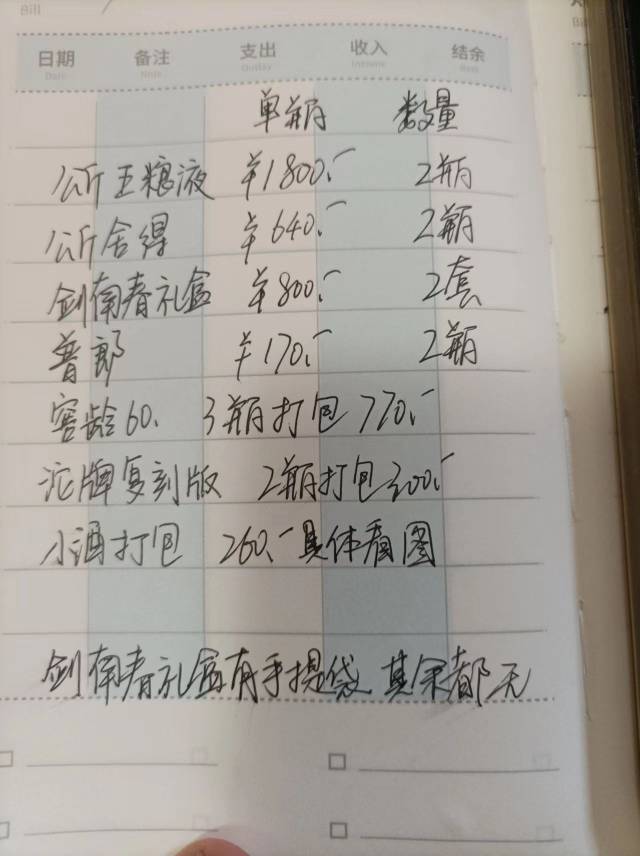 Bill
日期 备注 支出 收入 结余
Date Note Outlay Income Rest
单瓶 数量
公斤五粮液 ¥1800.- 2瓶
公斤舍得 ¥640.- 2瓶
剑南春礼盒 ¥800.- 2套
普郎 ¥170.- 2瓶
窖龄60. 3瓶打包770.-
沱牌复刻版 2瓶打包300.-
小酒打包 260.- 具体看图
剑南春礼盒有手提袋 其余都无